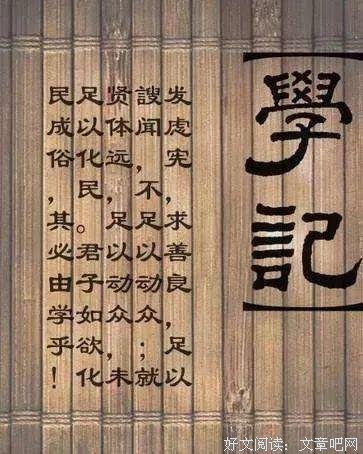 [學記]
发虑宪，求善良，足以
謏闻，不足以动众；就
贤体远，足以动众，未
足以化民。君子如欲化
民成俗，其必由学乎！
好文阅读：文章吧网